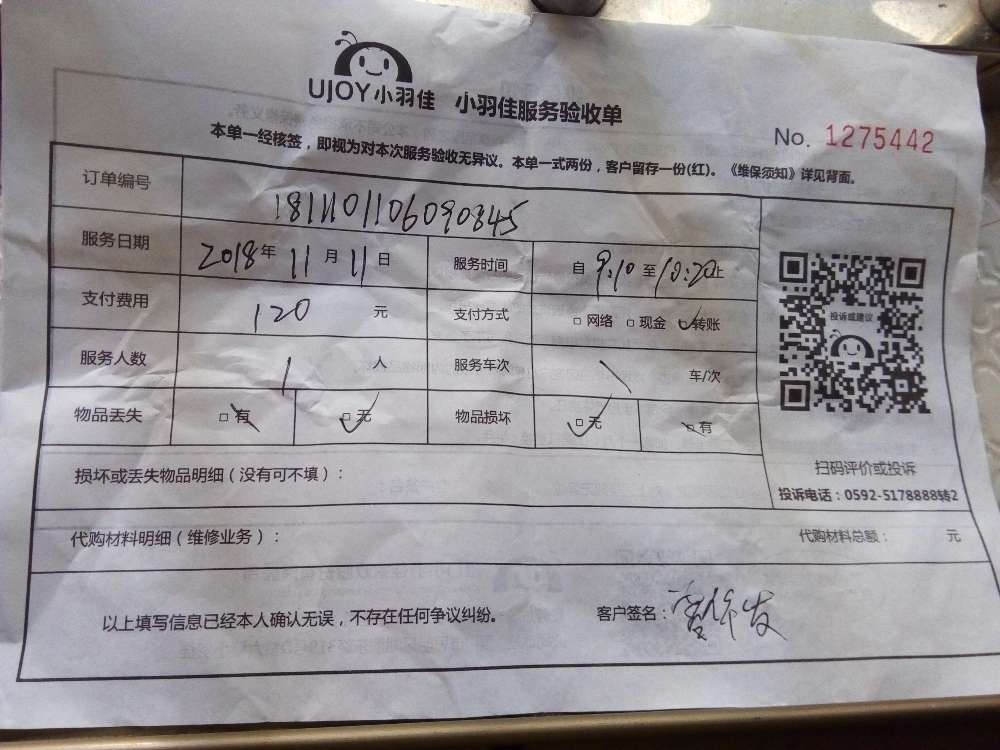 UJOY小羽佳 小羽佳服务验收单
No. 1275442
本单一经核签，即视为对本次服务验收无异议。本单一式两份，客户留存一份(红)。《维保须知》详见背面。
订单编号 1811101106090845
服务日期 2018年11月11日 服务时间 自9:10至10:20止
支付费用 120 元 支付方式 □网络 □现金 ☑转账
服务人数 1 人 服务车次 \ 车/次
物品丢失 □有 ☑无 物品损坏 ☑无 □有
投诉或建议
扫码评价或投诉
投诉电话：0592-5178888转2
损坏或丢失物品明细（没有可不填）：
代购材料明细（维修业务）： 代购材料总额： 元
以上填写信息已经本人确认无误，不存在任何争议纠纷。 客户签名：